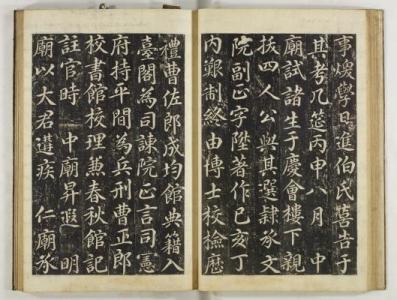 事煖學日進伯氏嘗告于
其考几筵丙申八月 中
廟試諸生于慶會樓下親
拔四人公與其選隷承文
院副正字陞著作己亥丁
内艱制終由博士校撿歷
禮曹佐郎成均館典籍入
臺閣為司諫院正言司憲
府持平間為兵刑曹正郎
校書館校理兼春秋館記
註官時 中廟昇遐 明
廟以大君遘疾 仁廟承